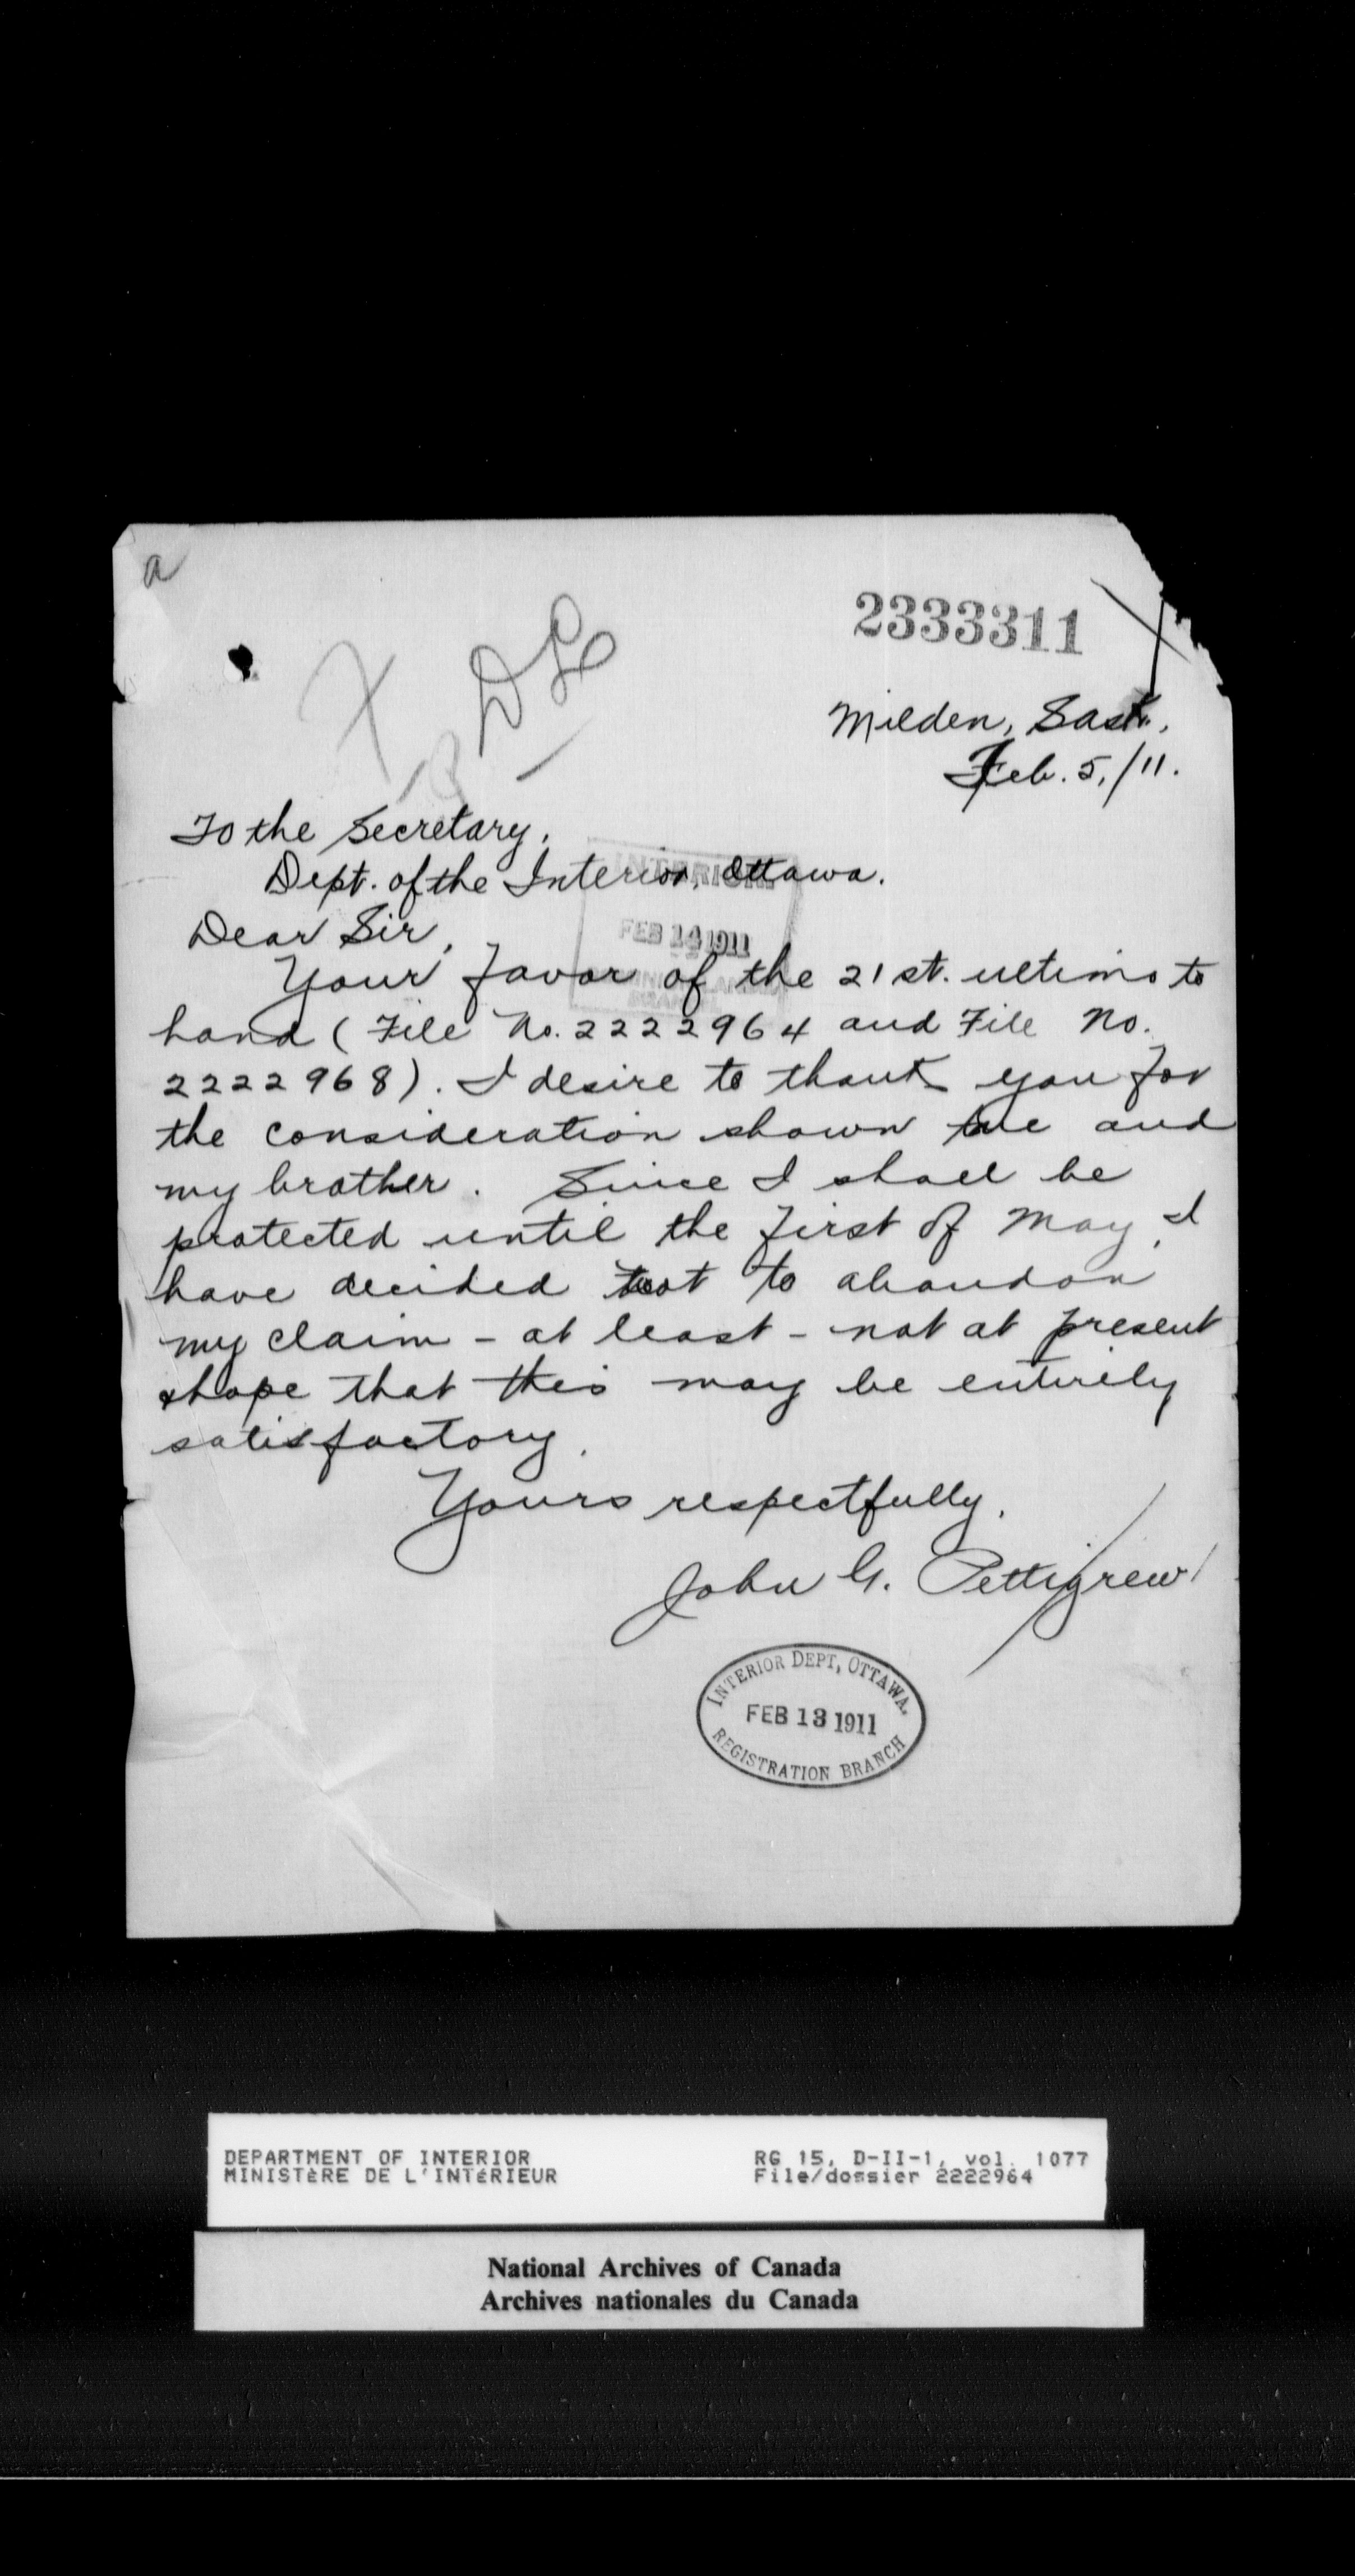 a
2333311
DL
Milden, Sask.,
Feb. 5, /11.
To the Secretary,
Dept. of the Interior, Ottawa.
INTERIOR
Dear Sir,
FEB 14 1911
Your favor of the 21st. ultimo to
hand (File No. 2222964 and File No.
2222968). I desire to thank you for
the consideration shown me and
my brother. Since I shall be
protected until the first of May, I
have decided not to abandon
my claim - at least - not at present
I hope that this may be entirely
satisfactory.
Yours respectfully,
John G. Pettigrew
INTERIOR DEPT, OTTAWA.
FEB 13 1911
REGISTRATION BRANCH
DEPARTMENT OF INTERIOR RG 15, D-II-1, vol. 1077
MINISTÈRE DE L'INTÉRIEUR File/dossier 2222964
National Archives of Canada
Archives nationales du Canada